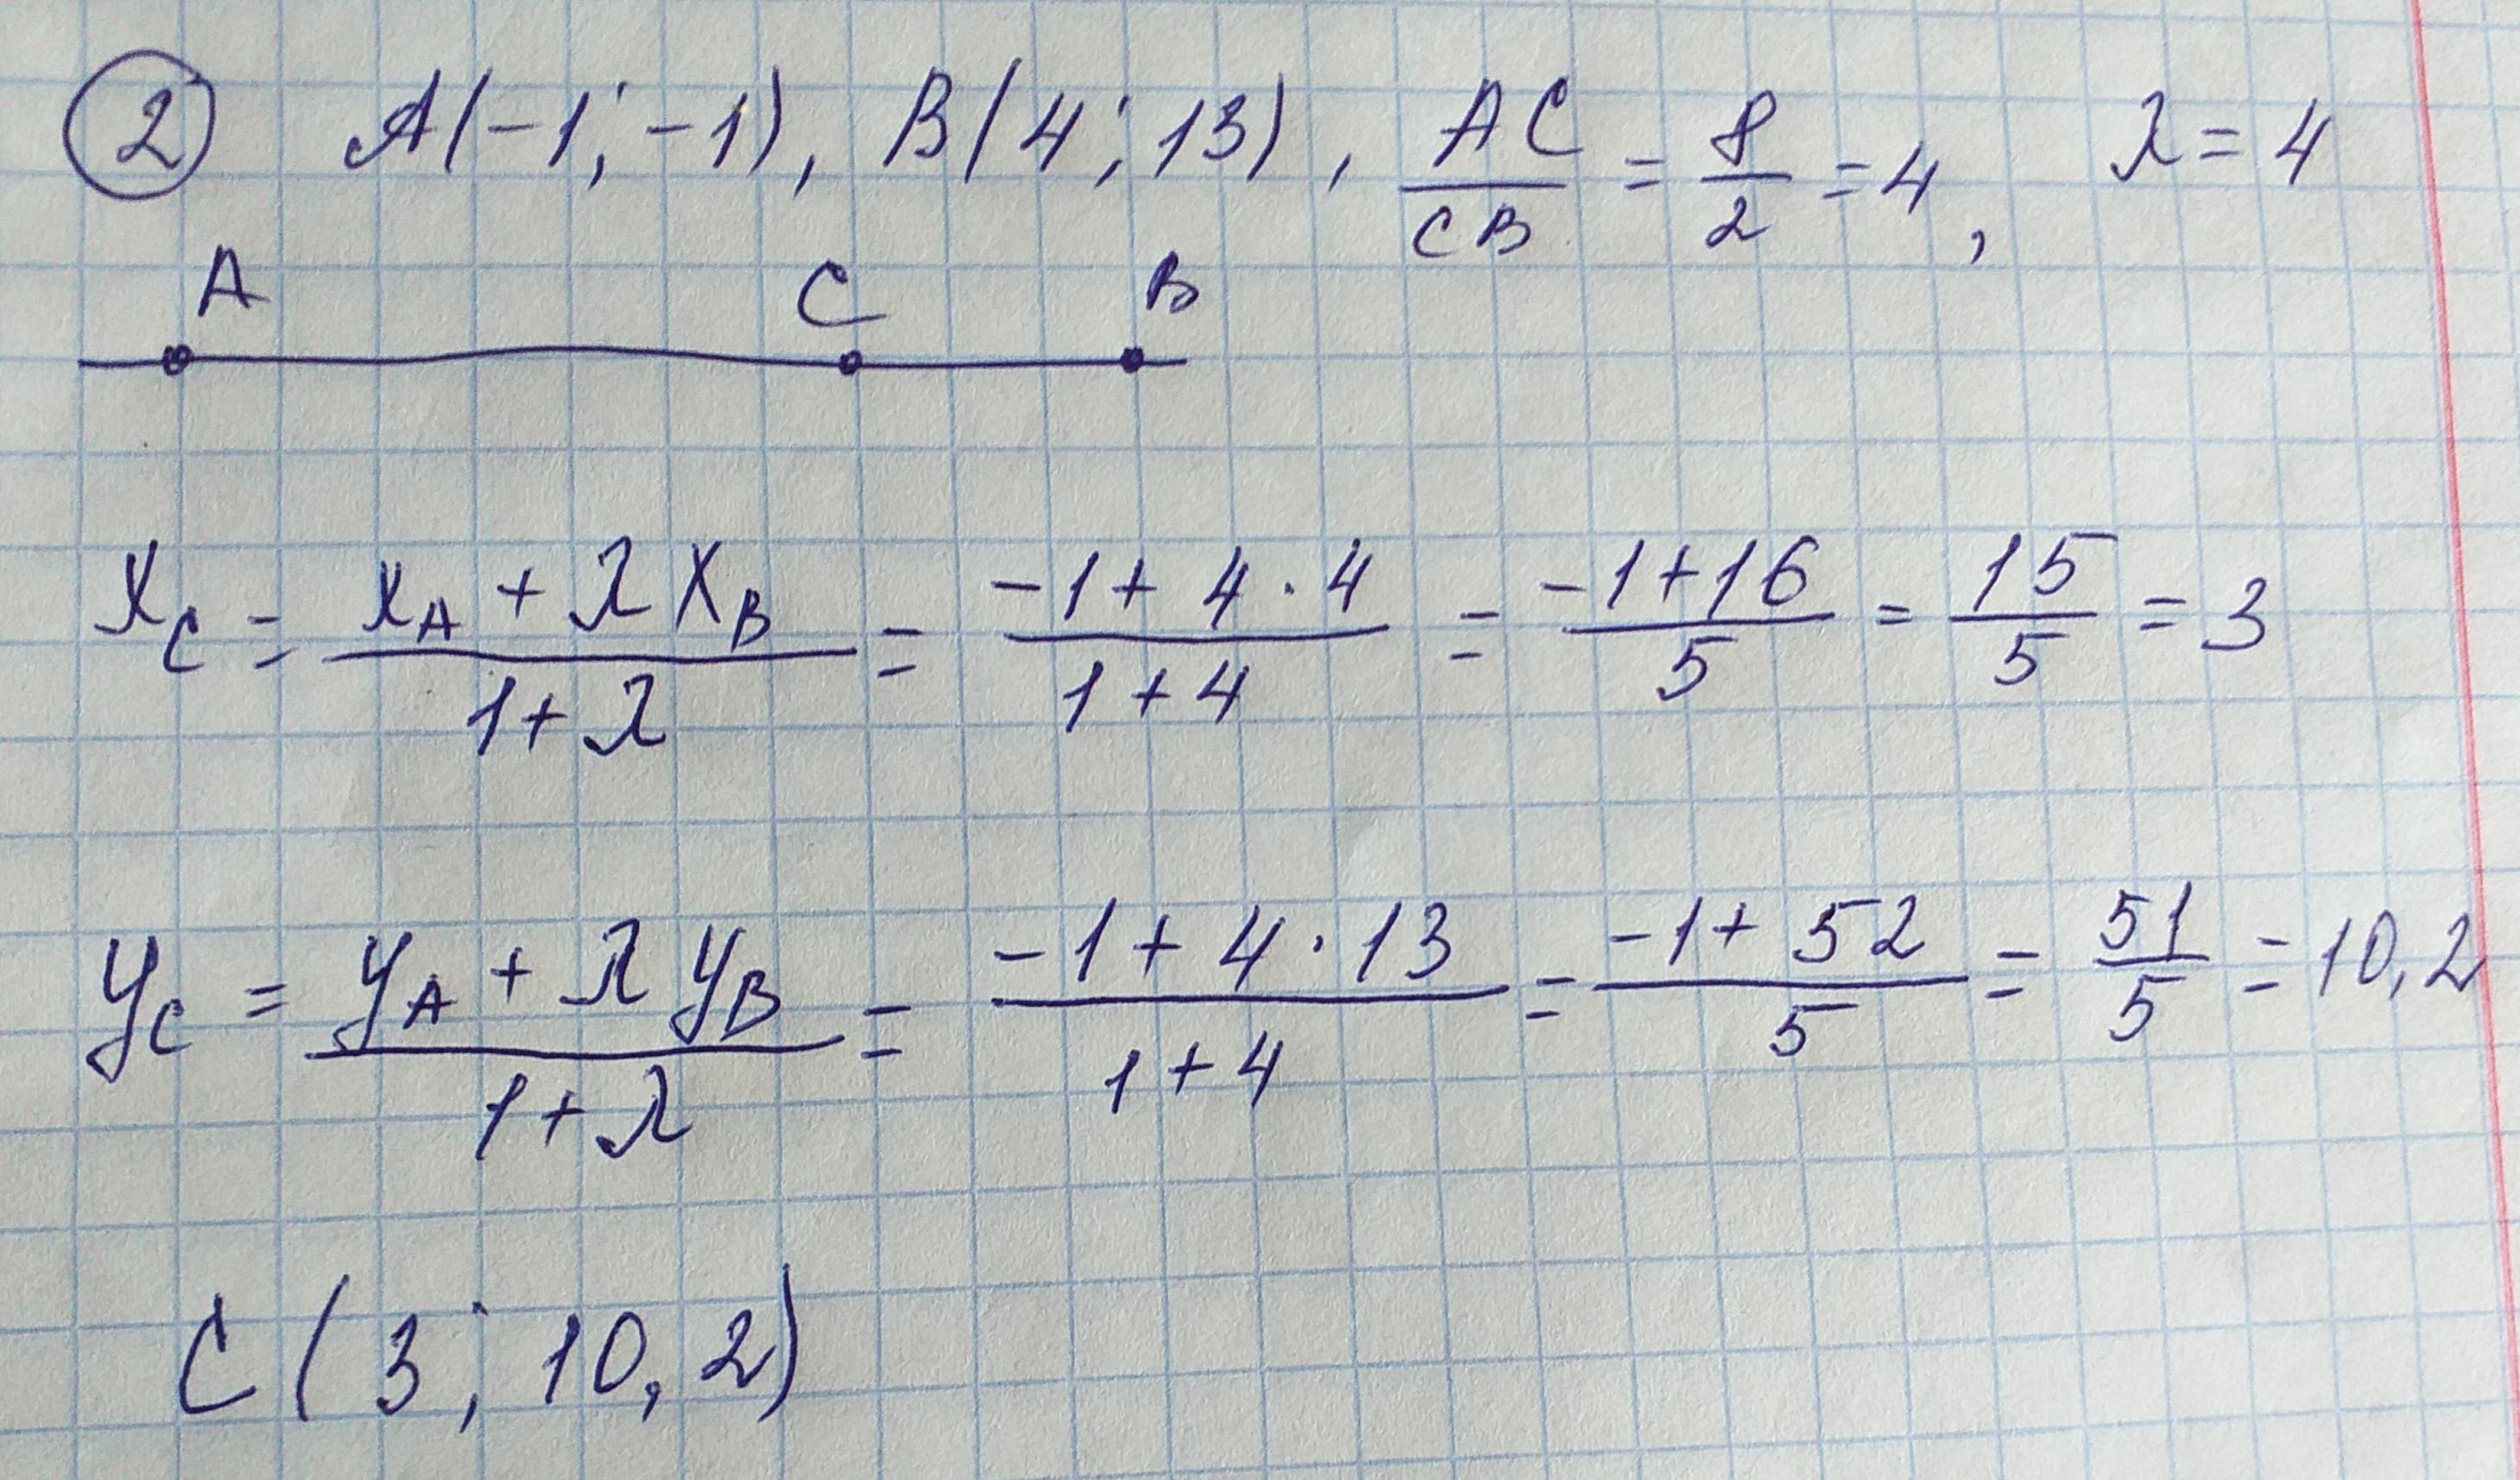 2 A(-1; -1), B(4; 13), AC/CB = 8/2 = 4, λ = 4
A C B
x_C = (x_A + λ x_B)/(1 + λ) = (-1 + 4 · 4)/(1 + 4) = (-1 + 16)/5 = 15/5 = 3
y_C = (y_A + λ y_B)/(1 + λ) = (-1 + 4 · 13)/(1 + 4) = (-1 + 52)/5 = 51/5 = 10,2
C(3; 10,2)